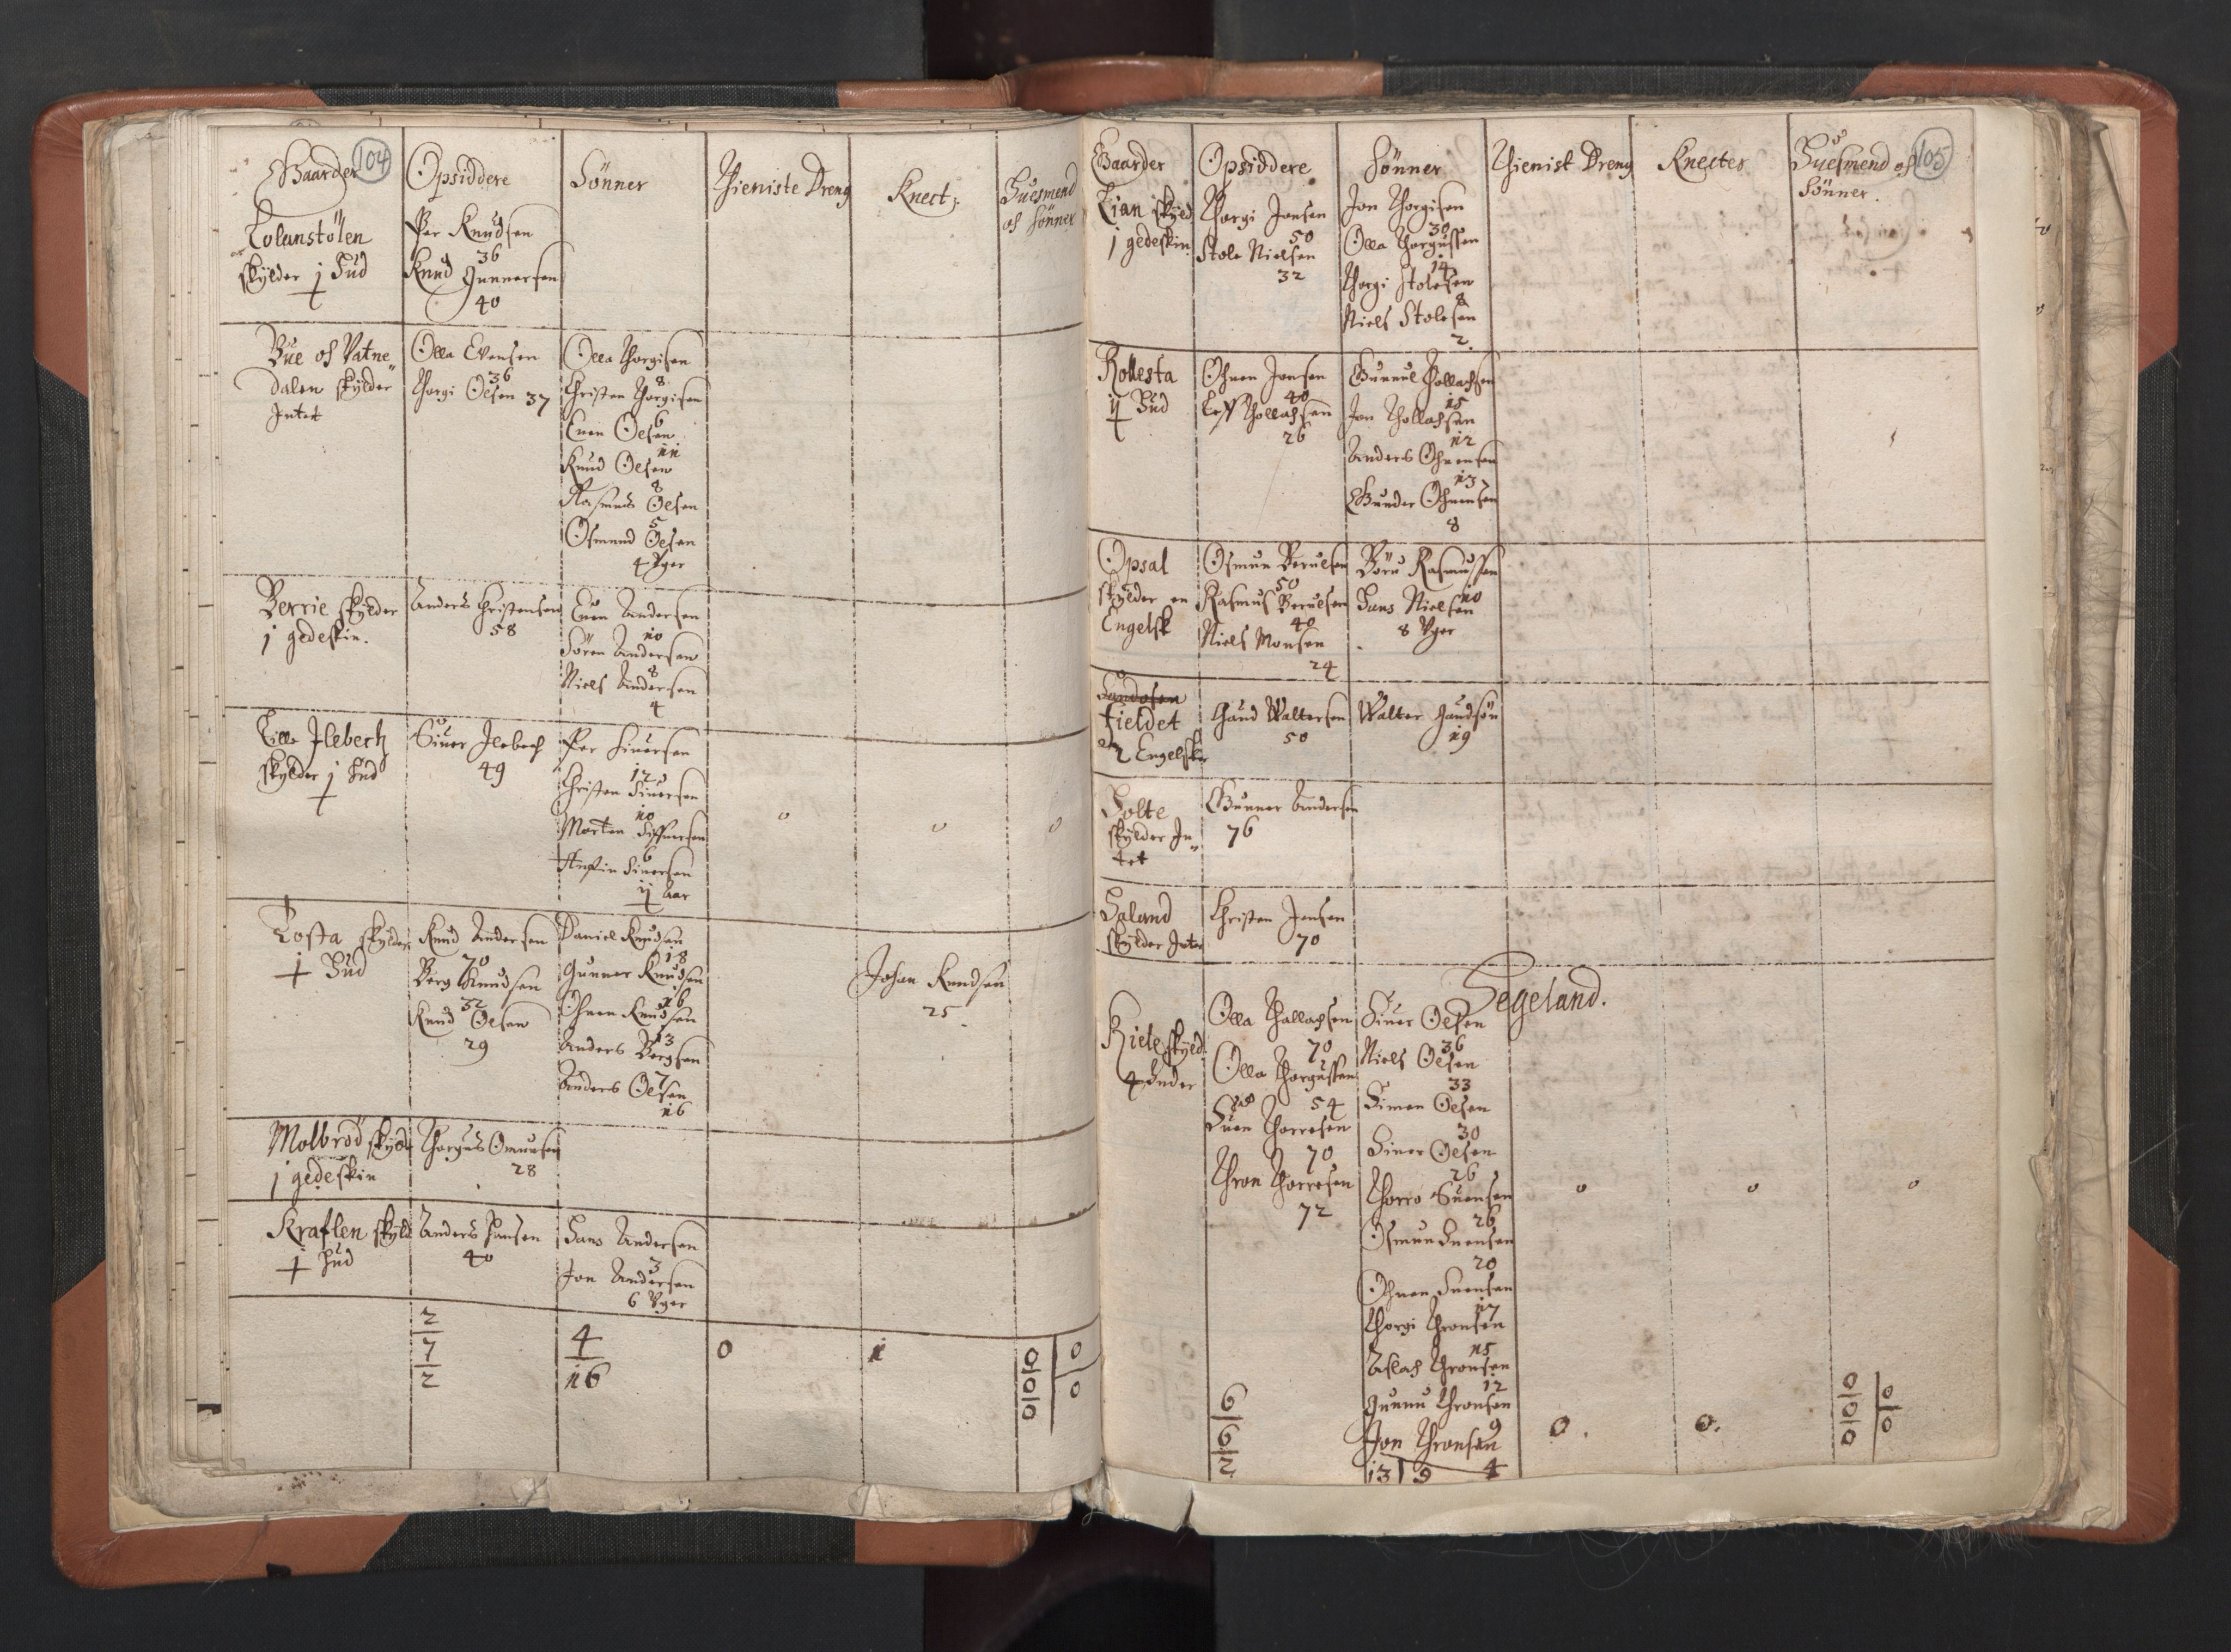 104
Gaarder
Opsiddere
Sönner
Thieniste Dreng
Knect:
Huesmend
oc Sönner
Lolanstölen
skylder j Hud
Per Knudsen
36
Knud Gunnersen
40
Bue oc Vatne
dalen skylder
Intet
Olla Evensen
36
Thorgi Olsen 37
Olla Thorgisen
8
Christen Thorgisen
6
Even Olsen
11
Knud Olsen
8
Rasmus Olsen
5
Osmund Olsen
4 Uger
Berrie skylder
j gedeskin.
Anders Christensen
58
Even Andersen
10
Sören Andersen
8
Niels Andersen
4
Lille Ilebech
skylder j Hud
Siuer Ilebech
49
Per Siuersen
12
Christen Siuersen
10
Morten Siffuersen
6
Siuersen
ij Aar
o
o
o
Losta skylder
j Hud
Knud Andersen
70
Berg Knudsen
32
Knud Olsen
29
Daniel Knudsen
18
Gunner Knudsen
16
Ohnen Knudsen
13
Anders Bergsen
7
Anders Olsen
16
Johan Knudsen
25
Molbröd skyld
j gedeskin
Thorgus Omunsen
28
Kraflen skyld
j Hud
Anders Hansen
40
Hans Andersen
3
Jon Andersen
6 Uger
2
7
2
4
16
0
1
0
0
0
0
0
105
Gaarder
Opsiddere
Sönner
Thienist Dreng
Knecter
Huesmend oc
Sönner.
Lian skyld
j gedeskin
Thorgi Jonsen
50
Stole Nielsen
32
Jon Thorgisen
30
Olla Thorgussen
14
Thorgi Stolesen
8
Niels Stolesen
2.
Rollesta
ij Hud
Ohnen Jonsen
40
Leff Thollachsen
26
Gunnul Thollachsen
15
Jon Thollachsen
12
Anders Ohnensen
13
Gunder Ohnensen
8
Opsal
skylder en
Engelsk
Osmun Berulsen
50
Rasmus Berulsen
40
Niels Monsen
24
Böru Rasmussen
10
Hans Nielsen
8 Uger
fieldet
2 Engelsk
Gaud Waltersen
50
Walter Gaudsön
19
Holte
skylder In
tet
Gunner Andersen
76
Haland
skylder Inte
Christen Jensen
70
Segeland.
Riele skyld
4 Huder
Olla Thallachsen
70
Olla Thorgussen
54
Suen Thorresen
70
Thron Thorresen
72
Siuer Olsen
36
Niels Olsen
33
Simen Olsen
30
Siuer Olsen
26
Thorro Suensen
26
Osmun Suensen
20
Ohnen Suensen
17
Thorgi Thronsen
15
Aslach Thronsen
12
Gunnu Thronsen
9
Jon Thronsen
4
o
o
o
6
6
2
13 9
0.
0.
0
0
0
0
0